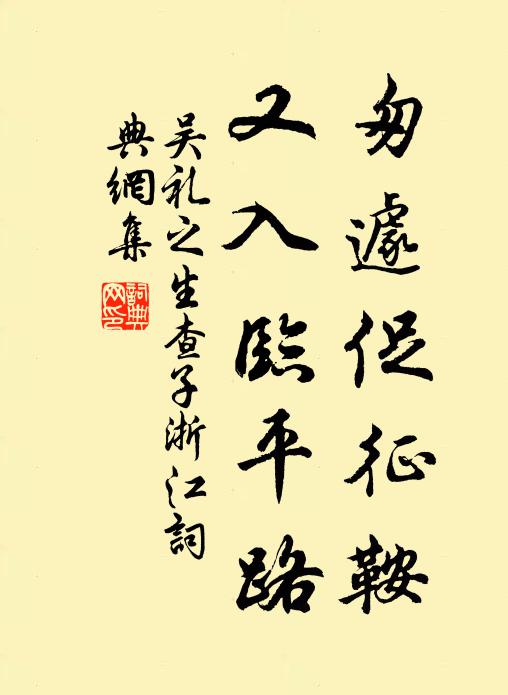 匆遽促征鞍
又入臨平路
吴礼之生查子浙江詞
典網集
詞典网印